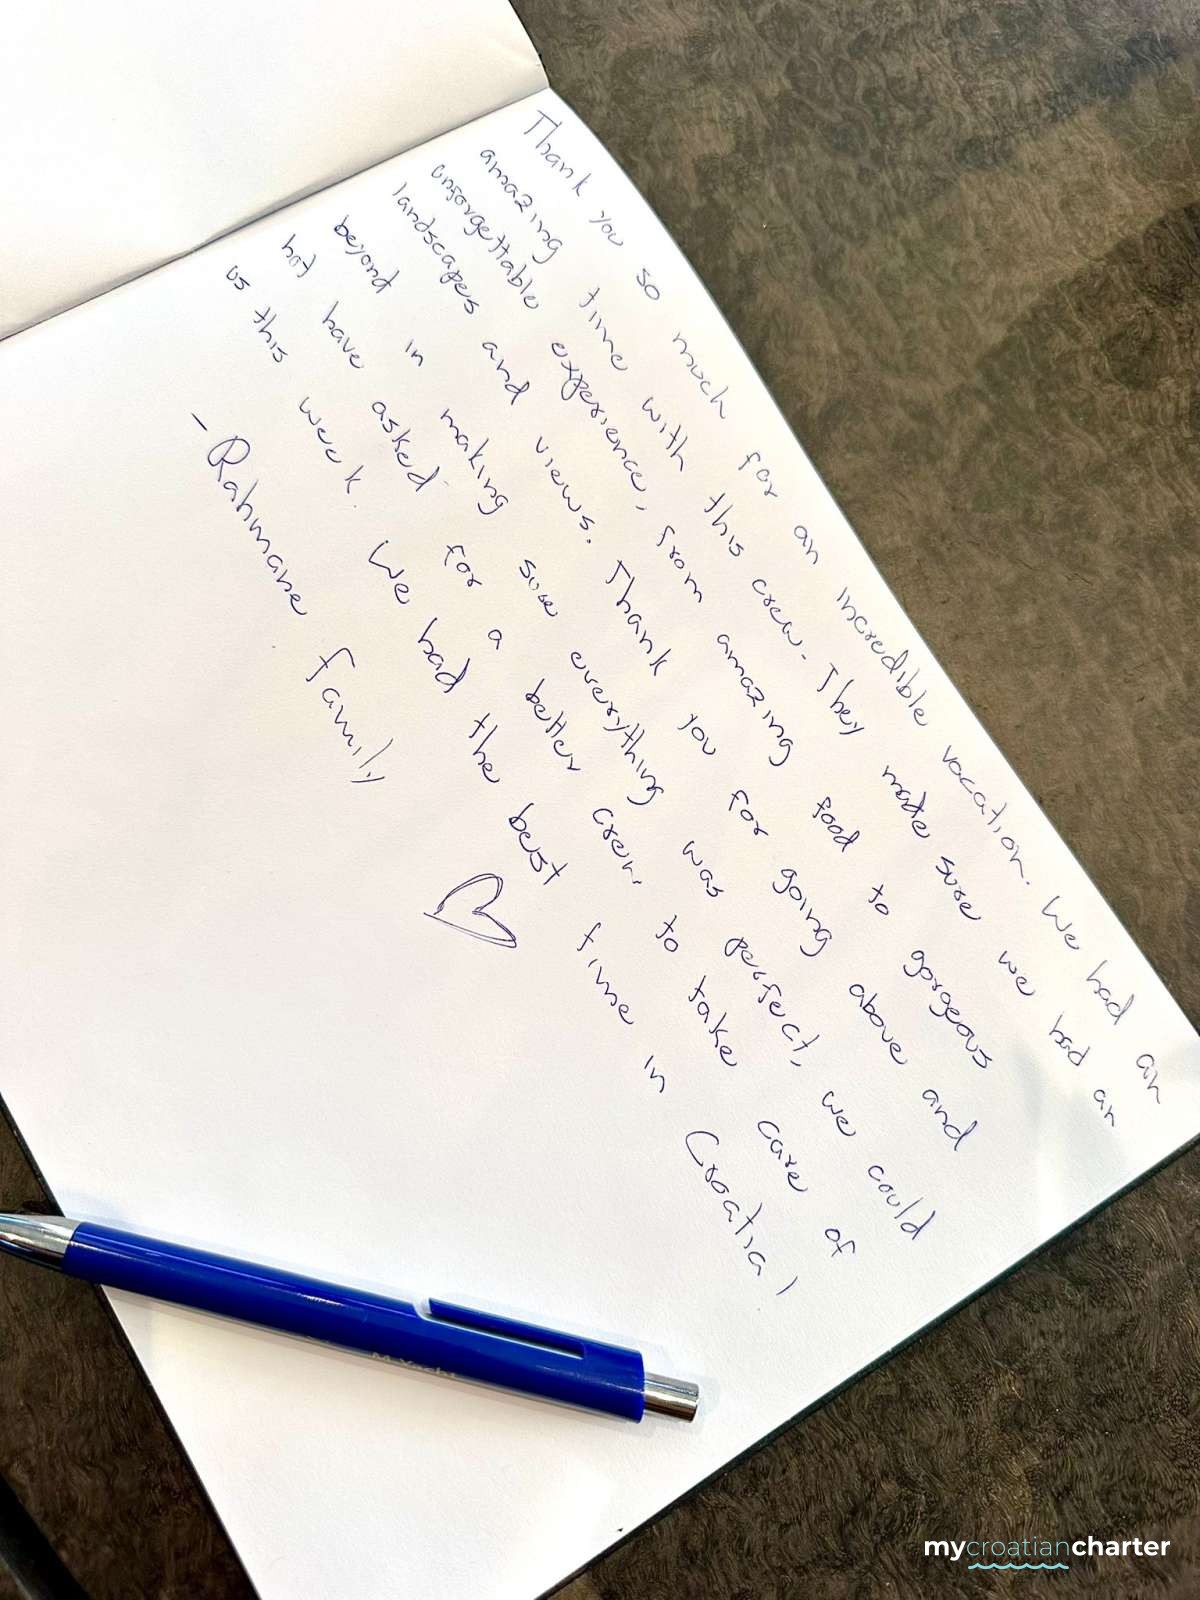 Thank you so much for an incredible vacation. We had an
amazing time with this crew. They made sure we had an
unforgettable experience, from amazing food to gorgeous
landscapes and views. Thank you for going above and
beyond in making sure everything was perfect, we could
not have asked for a better crew to take care of
us this week. We had the best time in Croatia!
- Rahmane Family
mycroatiancharter